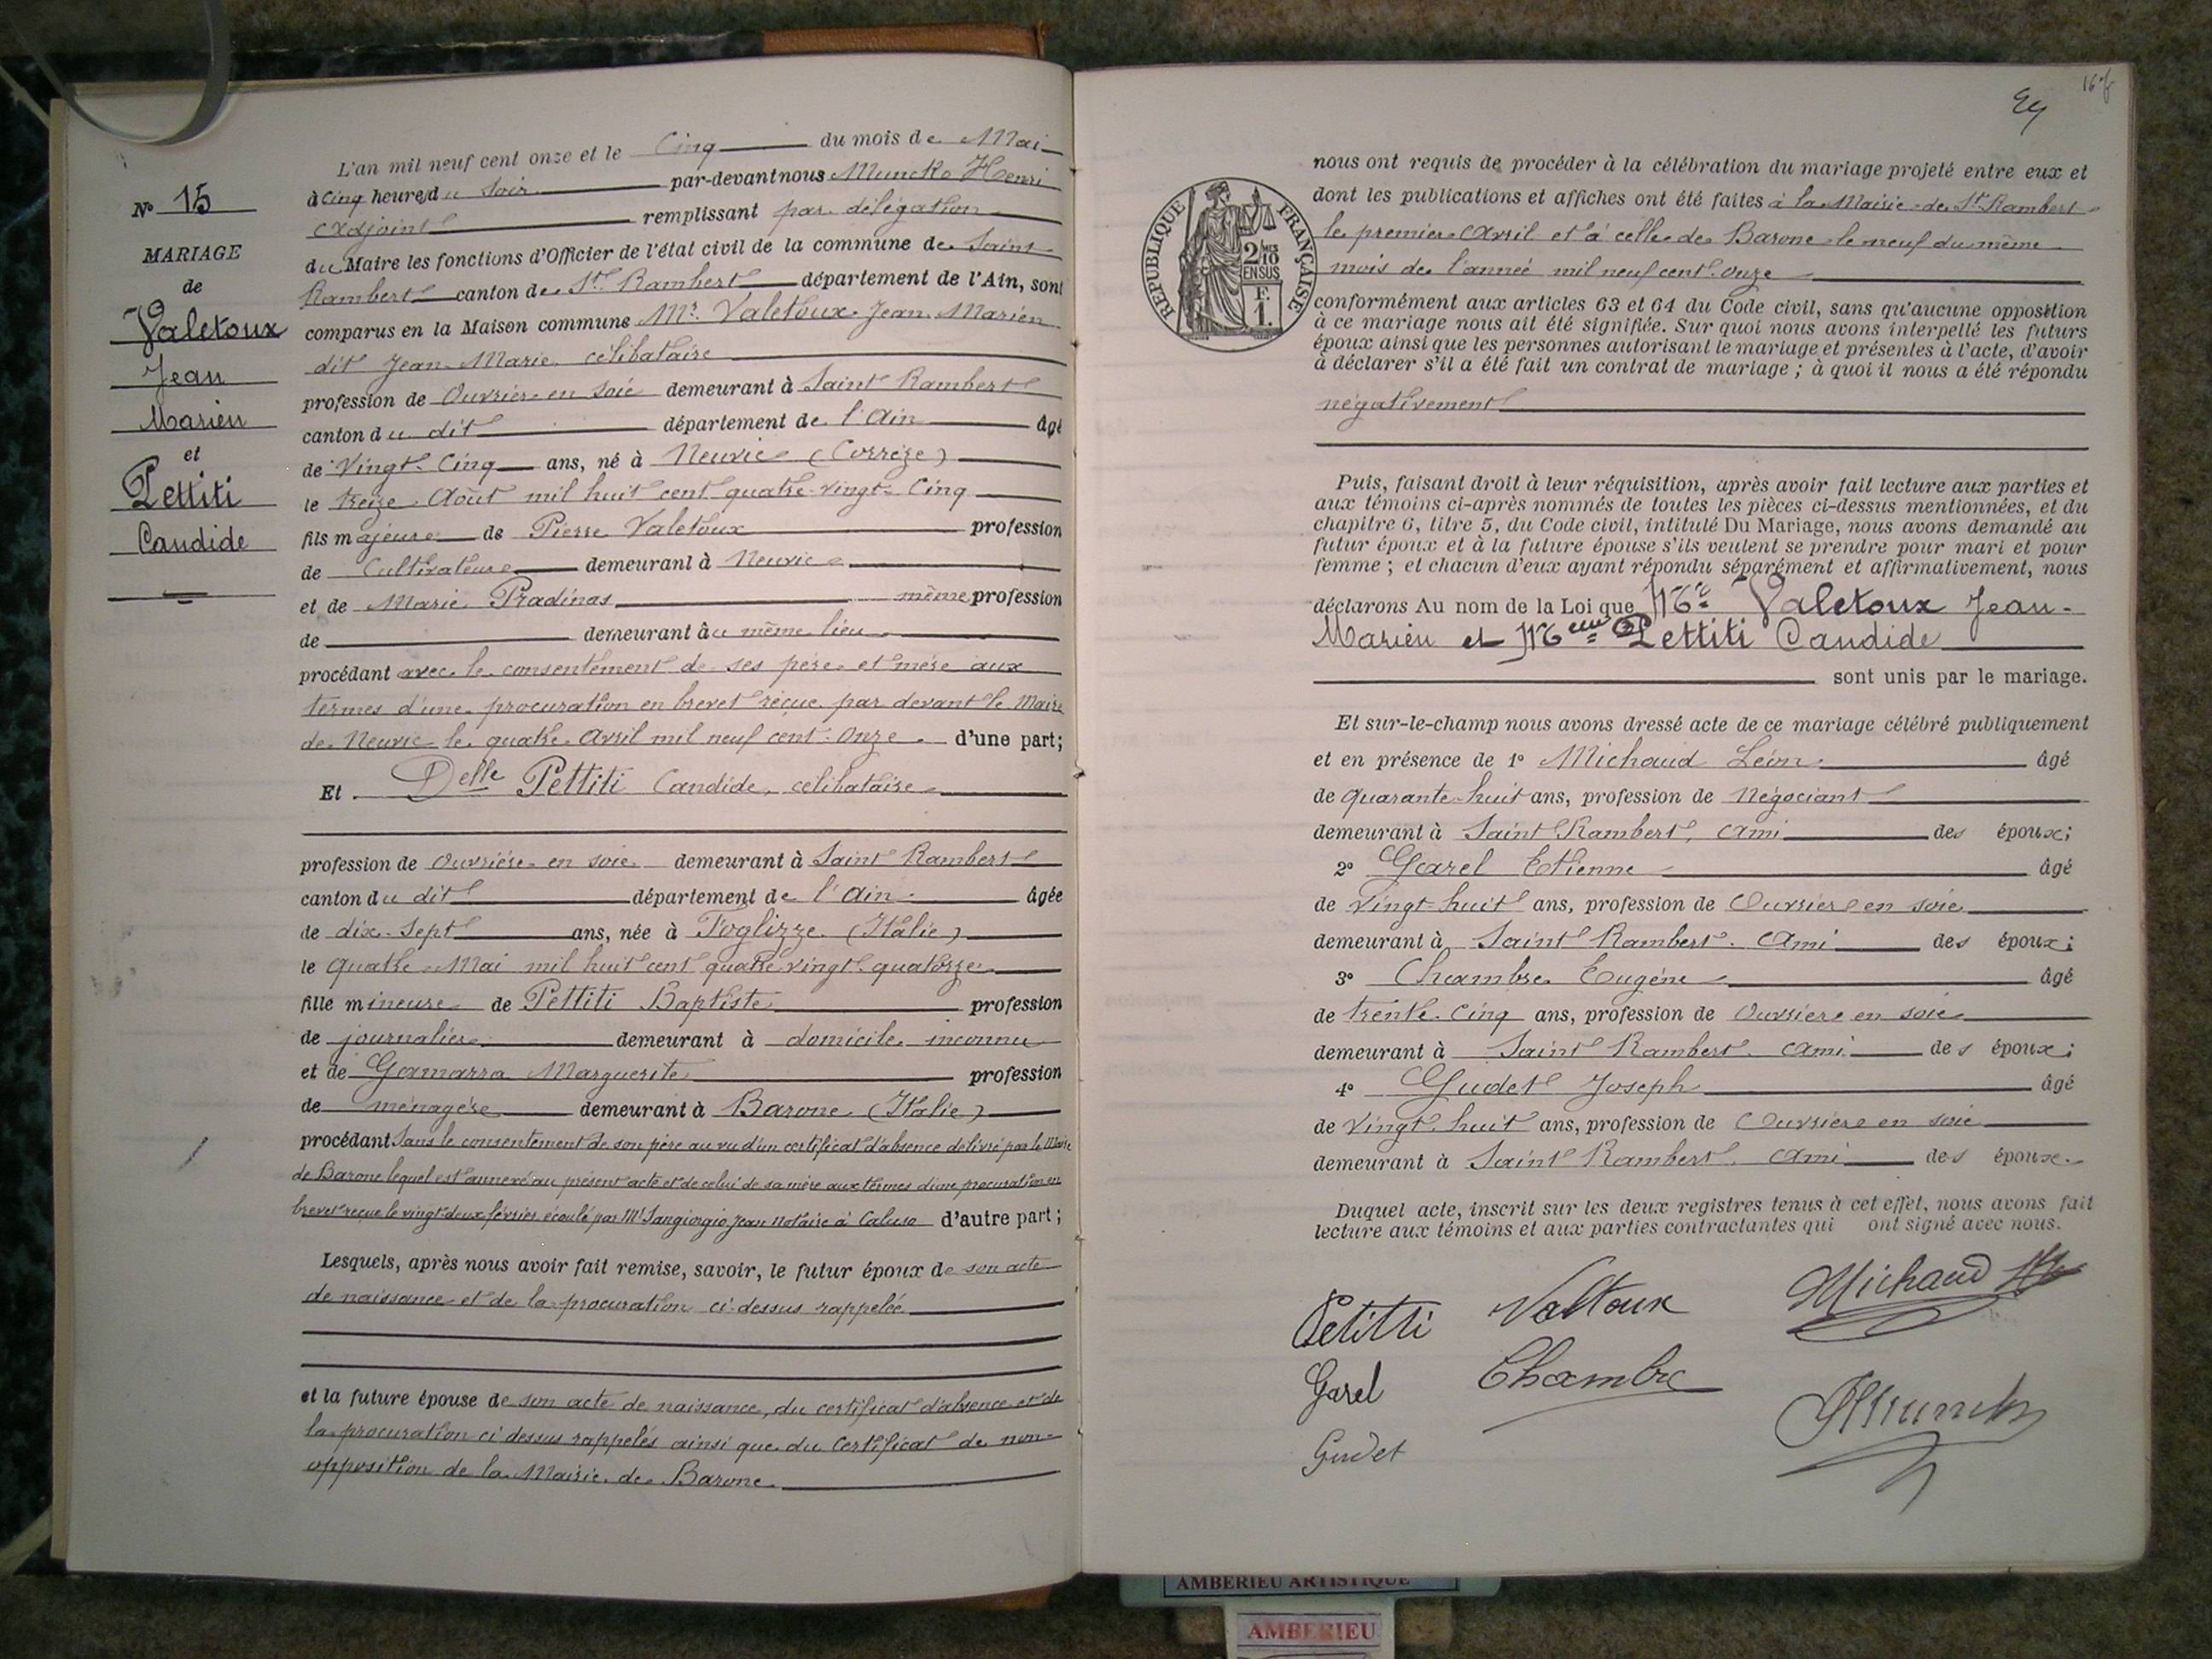 N° 15
MARIAGE
de
Valetoux
Jean
Marien
et
Pettiti
Candide
L'an mil neuf cent onze et le Cinq du mois de Mai
à Cinq heures du Soir par-devant nous Muncko Henri
Adjoint remplissant par délégation
du Maire les fonctions d'Officier de l'état civil de la commune de Saint
Rambert canton de St Rambert département de l'Ain, sont
comparus en la Maison commune Mr. Valetoux Jean Marien
dit Jean Marie, célibataire
profession de Ouvrier en soie demeurant à Saint Rambert
canton du dit département de l'Ain âgé
de Vingt-Cinq ans, né à Neuvic (Corrèze)
le treize Août mil huit cent quatre-vingt-Cinq
fils majeur de Pierre Valetoux profession
de Cultivateur demeurant à Neuvic
et de Marie Pradinas même profession
de demeurant au même lieu
procédant avec le consentement de ses père et mère aux
termes d'une procuration en brevet reçue par devant le Maire
de Neuvic le quatre Avril mil neuf cent onze d'une part;
Et Delle Pettiti Candide, célibataire
profession de Ouvrière en soie demeurant à Saint Rambert
canton du dit département de l'Ain âgée
de dix-sept ans, née à Foglizze (Italie)
le quatre Mai mil huit cent quatre vingt quatorze
fille mineure de Pettiti Baptiste profession
de journalier demeurant à domicile inconnu
et de Gamarra Marguerite profession
de ménagère demeurant à Barone (Italie)
procédant Sans le consentement de son père au vu d'un certificat d'absence délivré par le Maire
de Barone lequel est annexé au présent acte et de celui de sa mère aux termes d'une procuration en
brevet reçue le vingt deux février écoulé par Mr Sangiorgio Jean notaire à Caluso d'autre part;
Lesquels, après nous avoir fait remise, savoir, le futur époux de son acte
de naissance et de la procuration ci-dessus rappelée
et la future épouse de son acte de naissance, du certificat d'absence et de
la procuration ci dessus rappelés ainsi que du Certificat de non-
opposition de la Mairie de Barone
24
REPUBLIQUE FRANÇAISE
2/10
EN SUS
F.
1.
nous ont requis de procéder à la célébration du mariage projeté entre eux et
dont les publications et affiches ont été faites à la Mairie de St Rambert
le premier Avril et à celle de Barone le neuf du même
mois de l'année mil neuf cent onze
conformément aux articles 63 et 64 du Code civil, sans qu'aucune opposition
à ce mariage nous ait été signifiée. Sur quoi nous avons interpellé les futurs
époux ainsi que les personnes autorisant le mariage et présentes à l'acte, d'avoir
à déclarer s'il a été fait un contrat de mariage; à quoi il nous a été répondu
négativement
Puis, faisant droit à leur réquisition, après avoir fait lecture aux parties et
aux témoins ci-après nommés de toutes les pièces ci-dessus mentionnées, et du
chapitre 6, titre 5, du Code civil, intitulé Du Mariage, nous avons demandé au
futur époux et à la future épouse s'ils veulent se prendre pour mari et pour
femme; et chacun d'eux ayant répondu séparément et affirmativement, nous
déclarons Au nom de la Loi que Mr Valetoux Jean-
Marien et Melle Pettiti Candide
sont unis par le mariage.
Et sur-le-champ nous avons dressé acte de ce mariage célébré publiquement
et en présence de 1° Michaud Léon âgé
de quarante-huit ans, profession de Négociant
demeurant à Saint Rambert, ami des époux;
2° Garel Etienne âgé
de Vingt-huit ans, profession de Ouvrier en soie
demeurant à Saint Rambert. Ami des époux;
3° Chambre Eugène âgé
de trente-Cinq ans, profession de Ouvrier en soie
demeurant à Saint Rambert. ami des époux;
4° Gudet Joseph âgé
de Vingt-huit ans, profession de Ouvrier en soie
demeurant à Saint Rambert, ami des époux.
Duquel acte, inscrit sur les deux registres tenus à cet effet, nous avons fait
lecture aux témoins et aux parties contractantes qui ont signé avec nous.
Petitti Valtoux Michaud
Garel Chambre
Gudet
AMBERIEU ARTISTIQUE
AMBERIEU